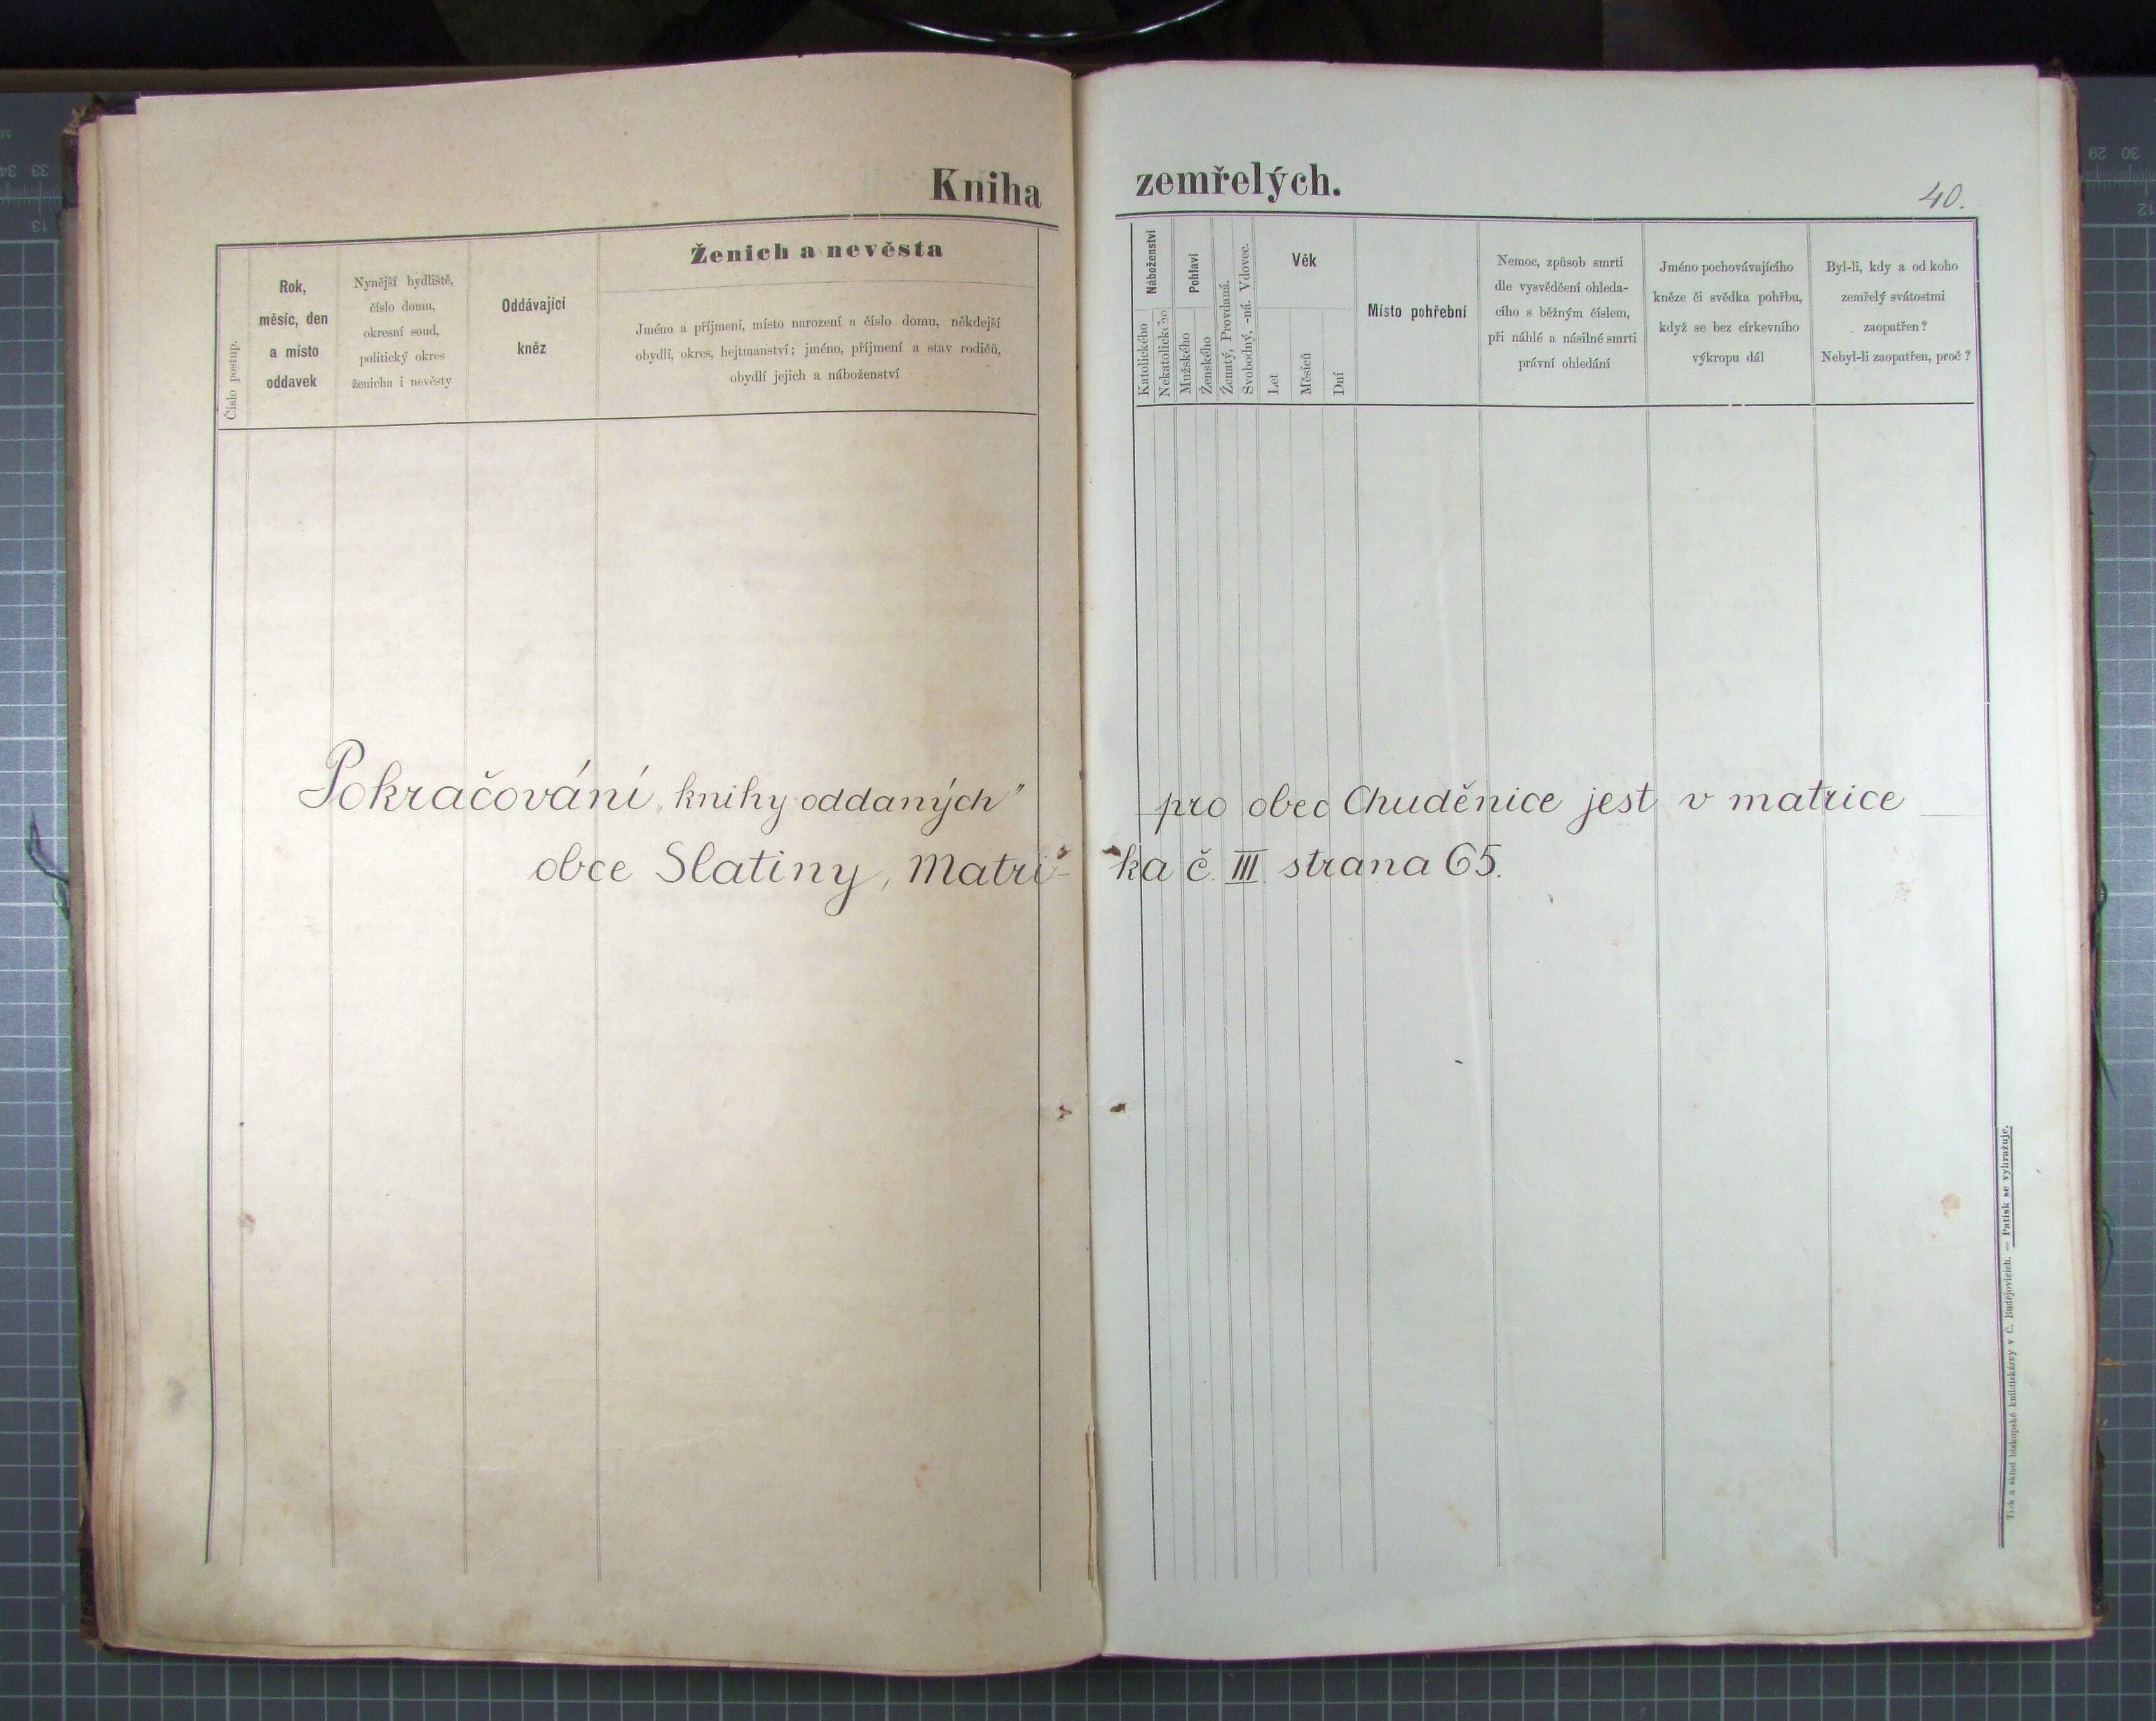 Kniha zemřelých.
40.
Číslo postup.
Rok,
měsíc, den
a místo
oddavek
Nynější bydliště,
číslo domu,
okresní soud,
politický okres
ženicha i nevěsty
Oddávající
kněz
Ženich a nevěsta
Jméno a příjmení, místo narození a číslo domu, někdejší
obydlí, okres, hejtmanství; jméno, příjmení a stav rodičů,
obydlí jejich a náboženství
Náboženství
Katolického
Nekatolického
Pohlaví
Mužského
Ženského
Ženatý, Provdaná.
Svobodný, -ná. Vdovec.
Věk
Let
Měsíců
Dní
Místo pohřební
Nemoc, způsob smrti
dle vysvědčení ohleda-
cího s běžným číslem,
při náhlé a násilné smrti
právní ohledání
Jméno pochovávajícího
kněze či svědka pohřbu,
když se bez církevního
výkropu dál
Byl-li, kdy a od koho
zemřelý svátostmi
zaopatřen?
Nebyl-li zaopatřen, proč?
Pokračování „knihy oddaných" pro obec Chuděnice jest v matrice
obce Slatiny, Matri- ka č. III. strana 65.
Tisk a sklad biskupské knihtiskárny v Č. Budějovicích. — Patisk se vyhražuje.